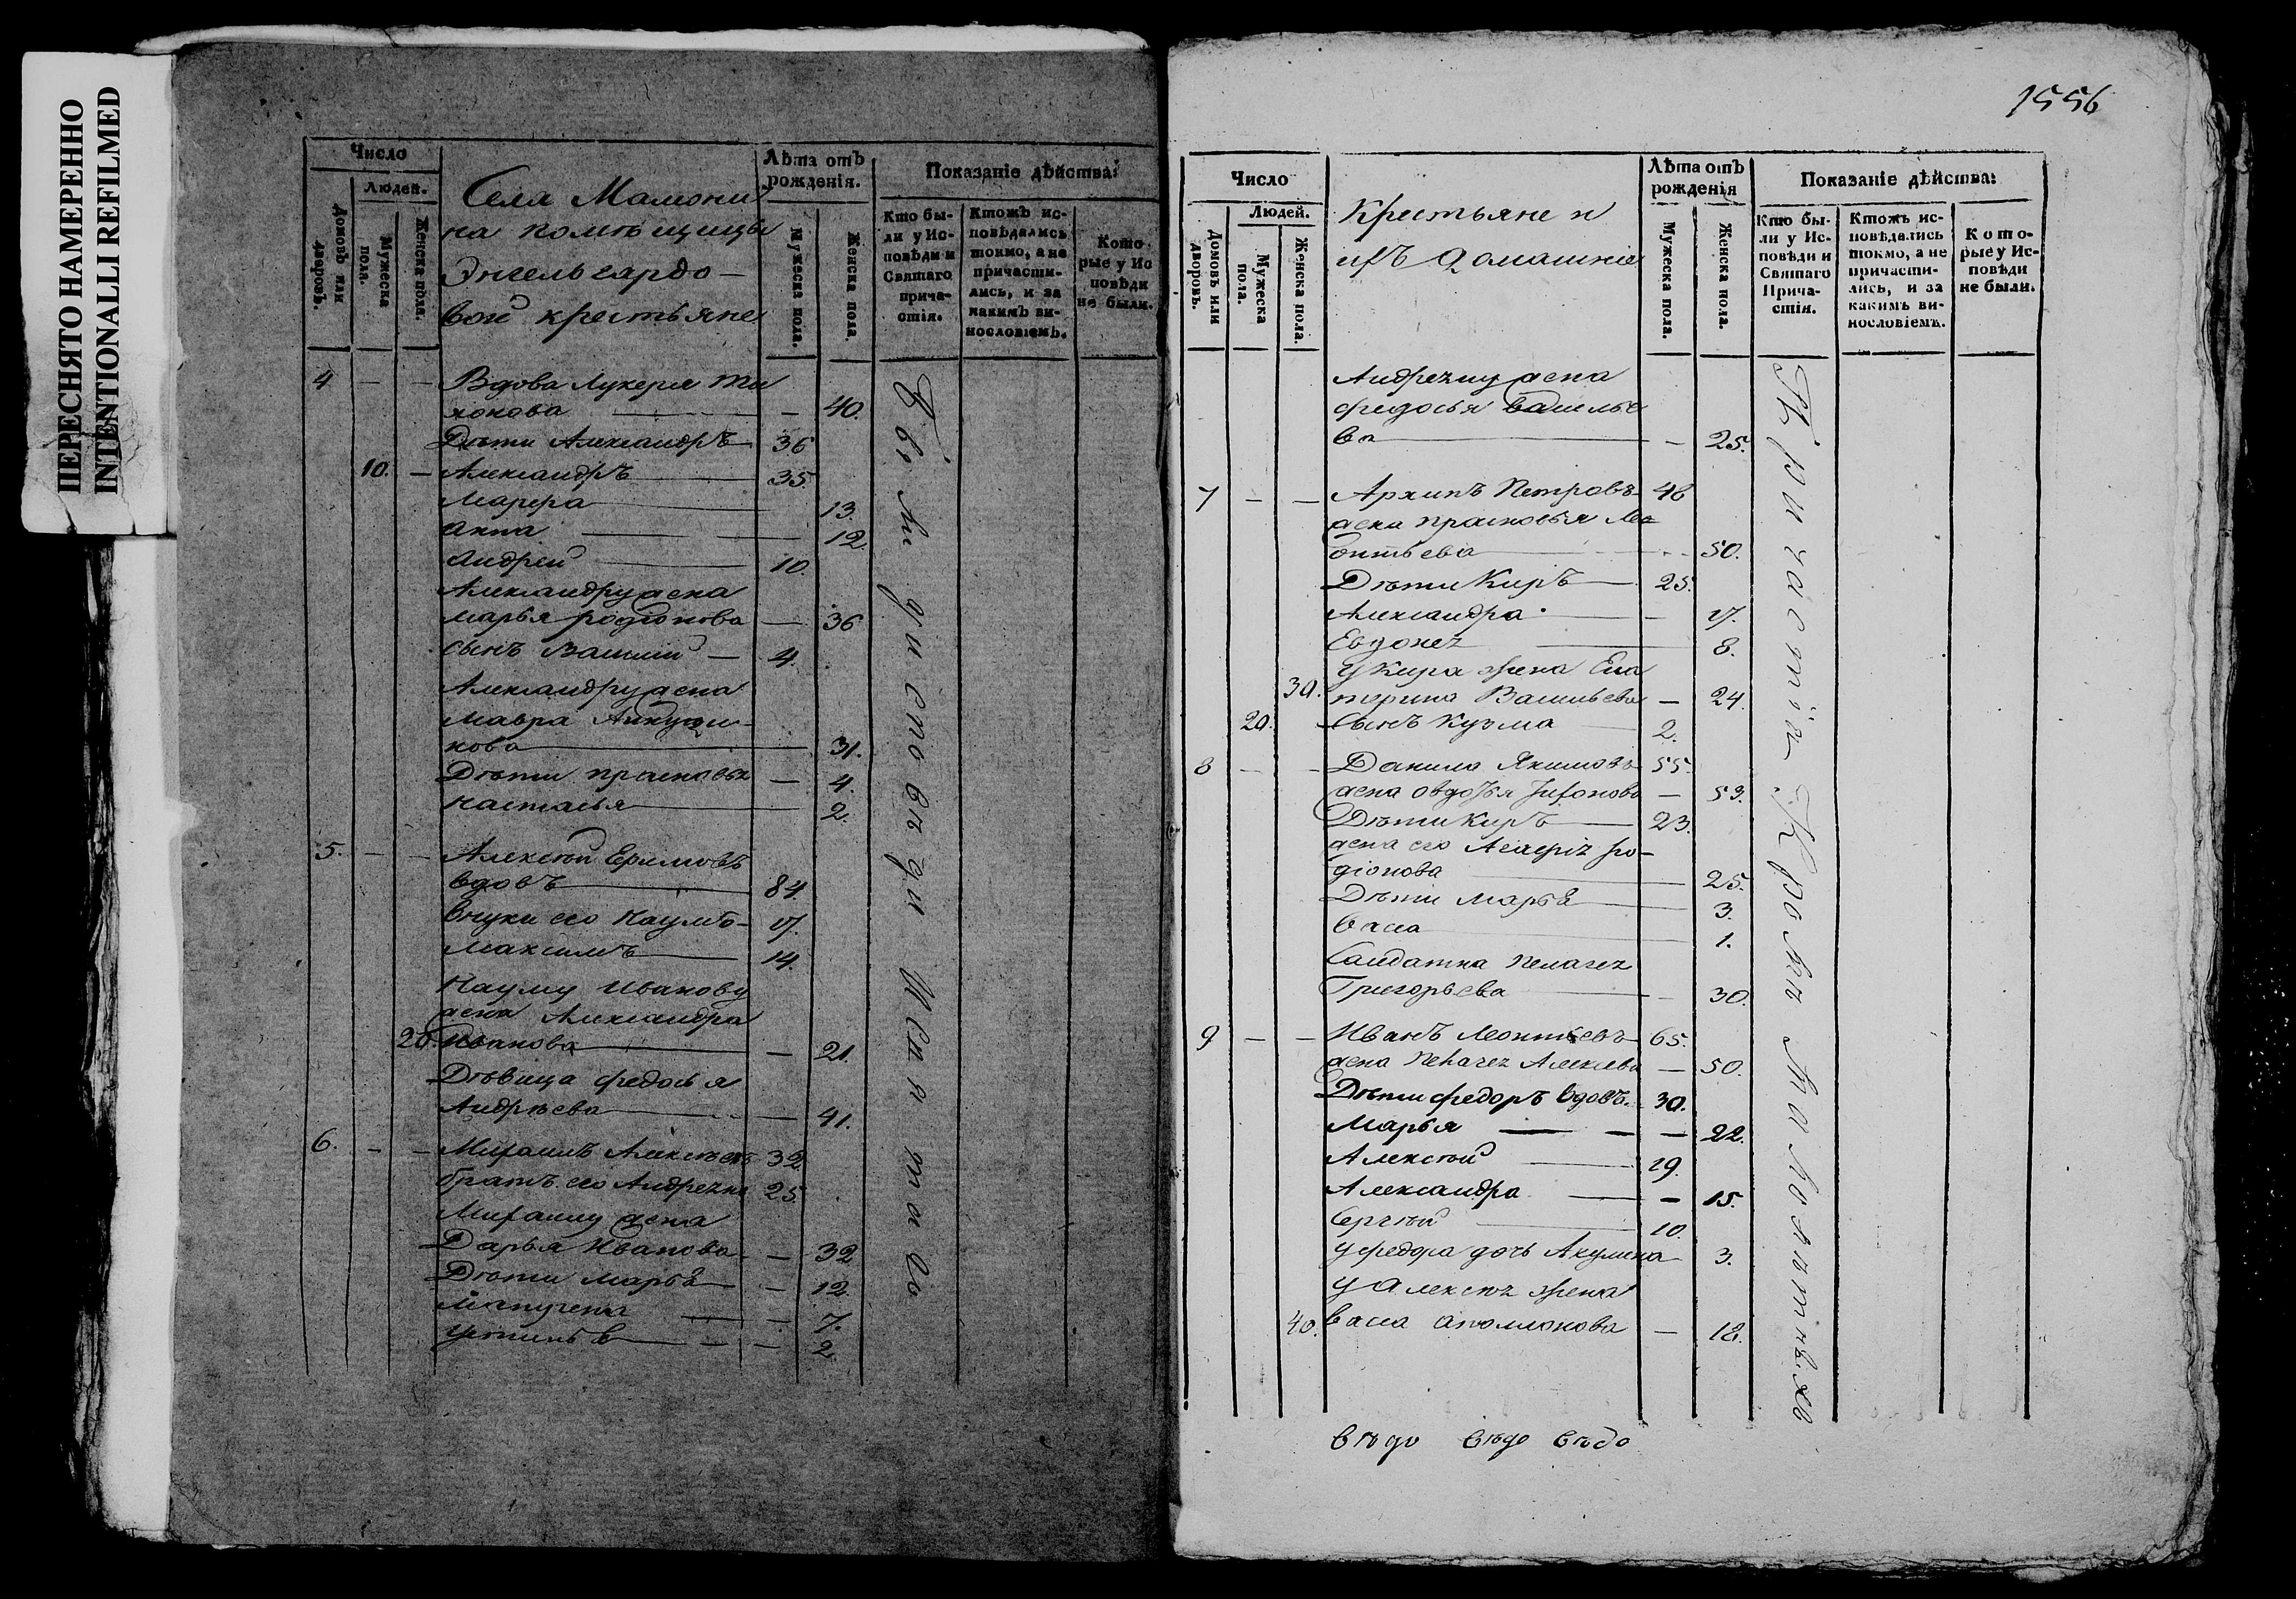 ПЕРЕСНЯТО НАМЕРЕННО
INTENTIONALLI REFILMED
Число
Людей.
Домовъ или дворовъ.
Мужеска пола.
Женска пола.
Села Мамони
на помѣщицы
Энгельгардо-
вой крестьяне
Лѣта отъ рожденія.
Мужеска пола.
Женска пола.
Показаніе дѣйства:
Кто бы-
ли у Ис-
повѣди и
Святаго
прича-
стія.
Ктожъ ис-
повѣдались
токмо, а не
причасти-
лись, и за
какимъ ви-
нословіемъ.
Кото-
рые у Ис
повѣди
не были.
4 — — Вдова Лукерья Ти
хонова — 40.
Дѣти Александръ 36
10. — Александръ 35.
Марфа 13.
Анна 12.
Андрей 10.
Александру жена
марья родіонова — 36
сынъ Василий — 4.
Александру жена
Мавра Анкуди-
нова 31.
Дѣти прасковья — 4.
настасья 2.
5. — — Алексѣй Ефимовъ
вдовъ 84.
внуки его Наумъ 17.
Максимъ 14.
Науму Иванову
жена Александра
20. Иванова — 21.
Дѣвица федосья
Андрѣева — 41.
6. — — Михаилъ Алексѣевъ 32.
братъ его Андреянъ 25.
Михаилу жена
Дарья Иванова — 32
Дѣти марья — 12.
— 7.
— 2.
У исповѣди и Святаго
1556
Число
Людей.
Домовъ или дворовъ.
Мужеска пола.
Женска пола.
Крестьяне и
ихъ домашніе
Лѣта отъ рожденія
Мужеска пола.
Женска пола.
Показаніе дѣйства:
Кто бы-
ли у Ис-
повѣди и
Святаго
Прича-
стія.
Ктожъ ис-
повѣдались
токмо, а не
причасти-
лись, и за
какимъ ви-
нословіемъ.
Кото-
рые у Ис-
повѣди
не были.
Андреяну жена
федосья Василье
ва — 25.
7 — — Архипъ Петровъ 46
жена прасковья Ле
онтьева 50.
Дѣти Киръ 25.
Александра — 17.
Евдокея 8.
30. У Кира жена Ека
терина Васильева — 24.
20. Сынъ Кузма 2.
8 — — Данило Якимовъ 55.
жена овдотья — 53.
Дѣти Киръ 23.
жена его ро-
діонова 25.
Дѣти Марья 3.
Васа 1.
Салдатка Пелагея
Григорьева — 30.
9 — — Иванъ Леонтьевъ 65.
жена Пелагея Алексѣева — 50.
Дѣти федоръ вдовъ 30.
Марья — — — 22.
Алексѣй 19.
Александра — 15.
Сергѣй 10.
У федора дочь Акулина 3.
У Алексѣя жена
40. Васа аполлонова — 18.
Причастія Кромѣ
вѣдо вѣдо вѣдо